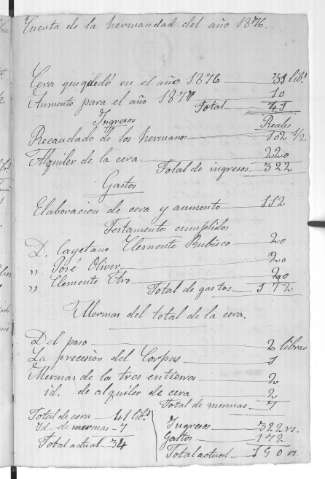 Cuenta de la hermandad del año 1876.
Cera que quedó en el año 1876 — 31 lib.s
Aumento para el año 1877 — 10
Total — 41
Ingresos Reales
Recaudado de los hermanos — 102 ½
Alquiler de la cera — 220
Total de ingresos — 322
Gastos
Elaboracion de cera y aumento — 112
Testamento cumplidos
D. Cayetano Clemente Rubisco — 20
„ José Oliver — 20
„ Clemente — 20
Total de gastos — 172
Mermas del total de la cera.
Del paso — 2 libras
La procesion del Corpus — 1
Mermas de la tres entierros — 2
id. de alquiler de cera — 2
Total de mermas — 7
Total de cera — 41 lib.s
Id. de mermas — 7
Total actual — 34
Ingresos — 322 rs.
Gastos — 172
Total actual — 150 rs